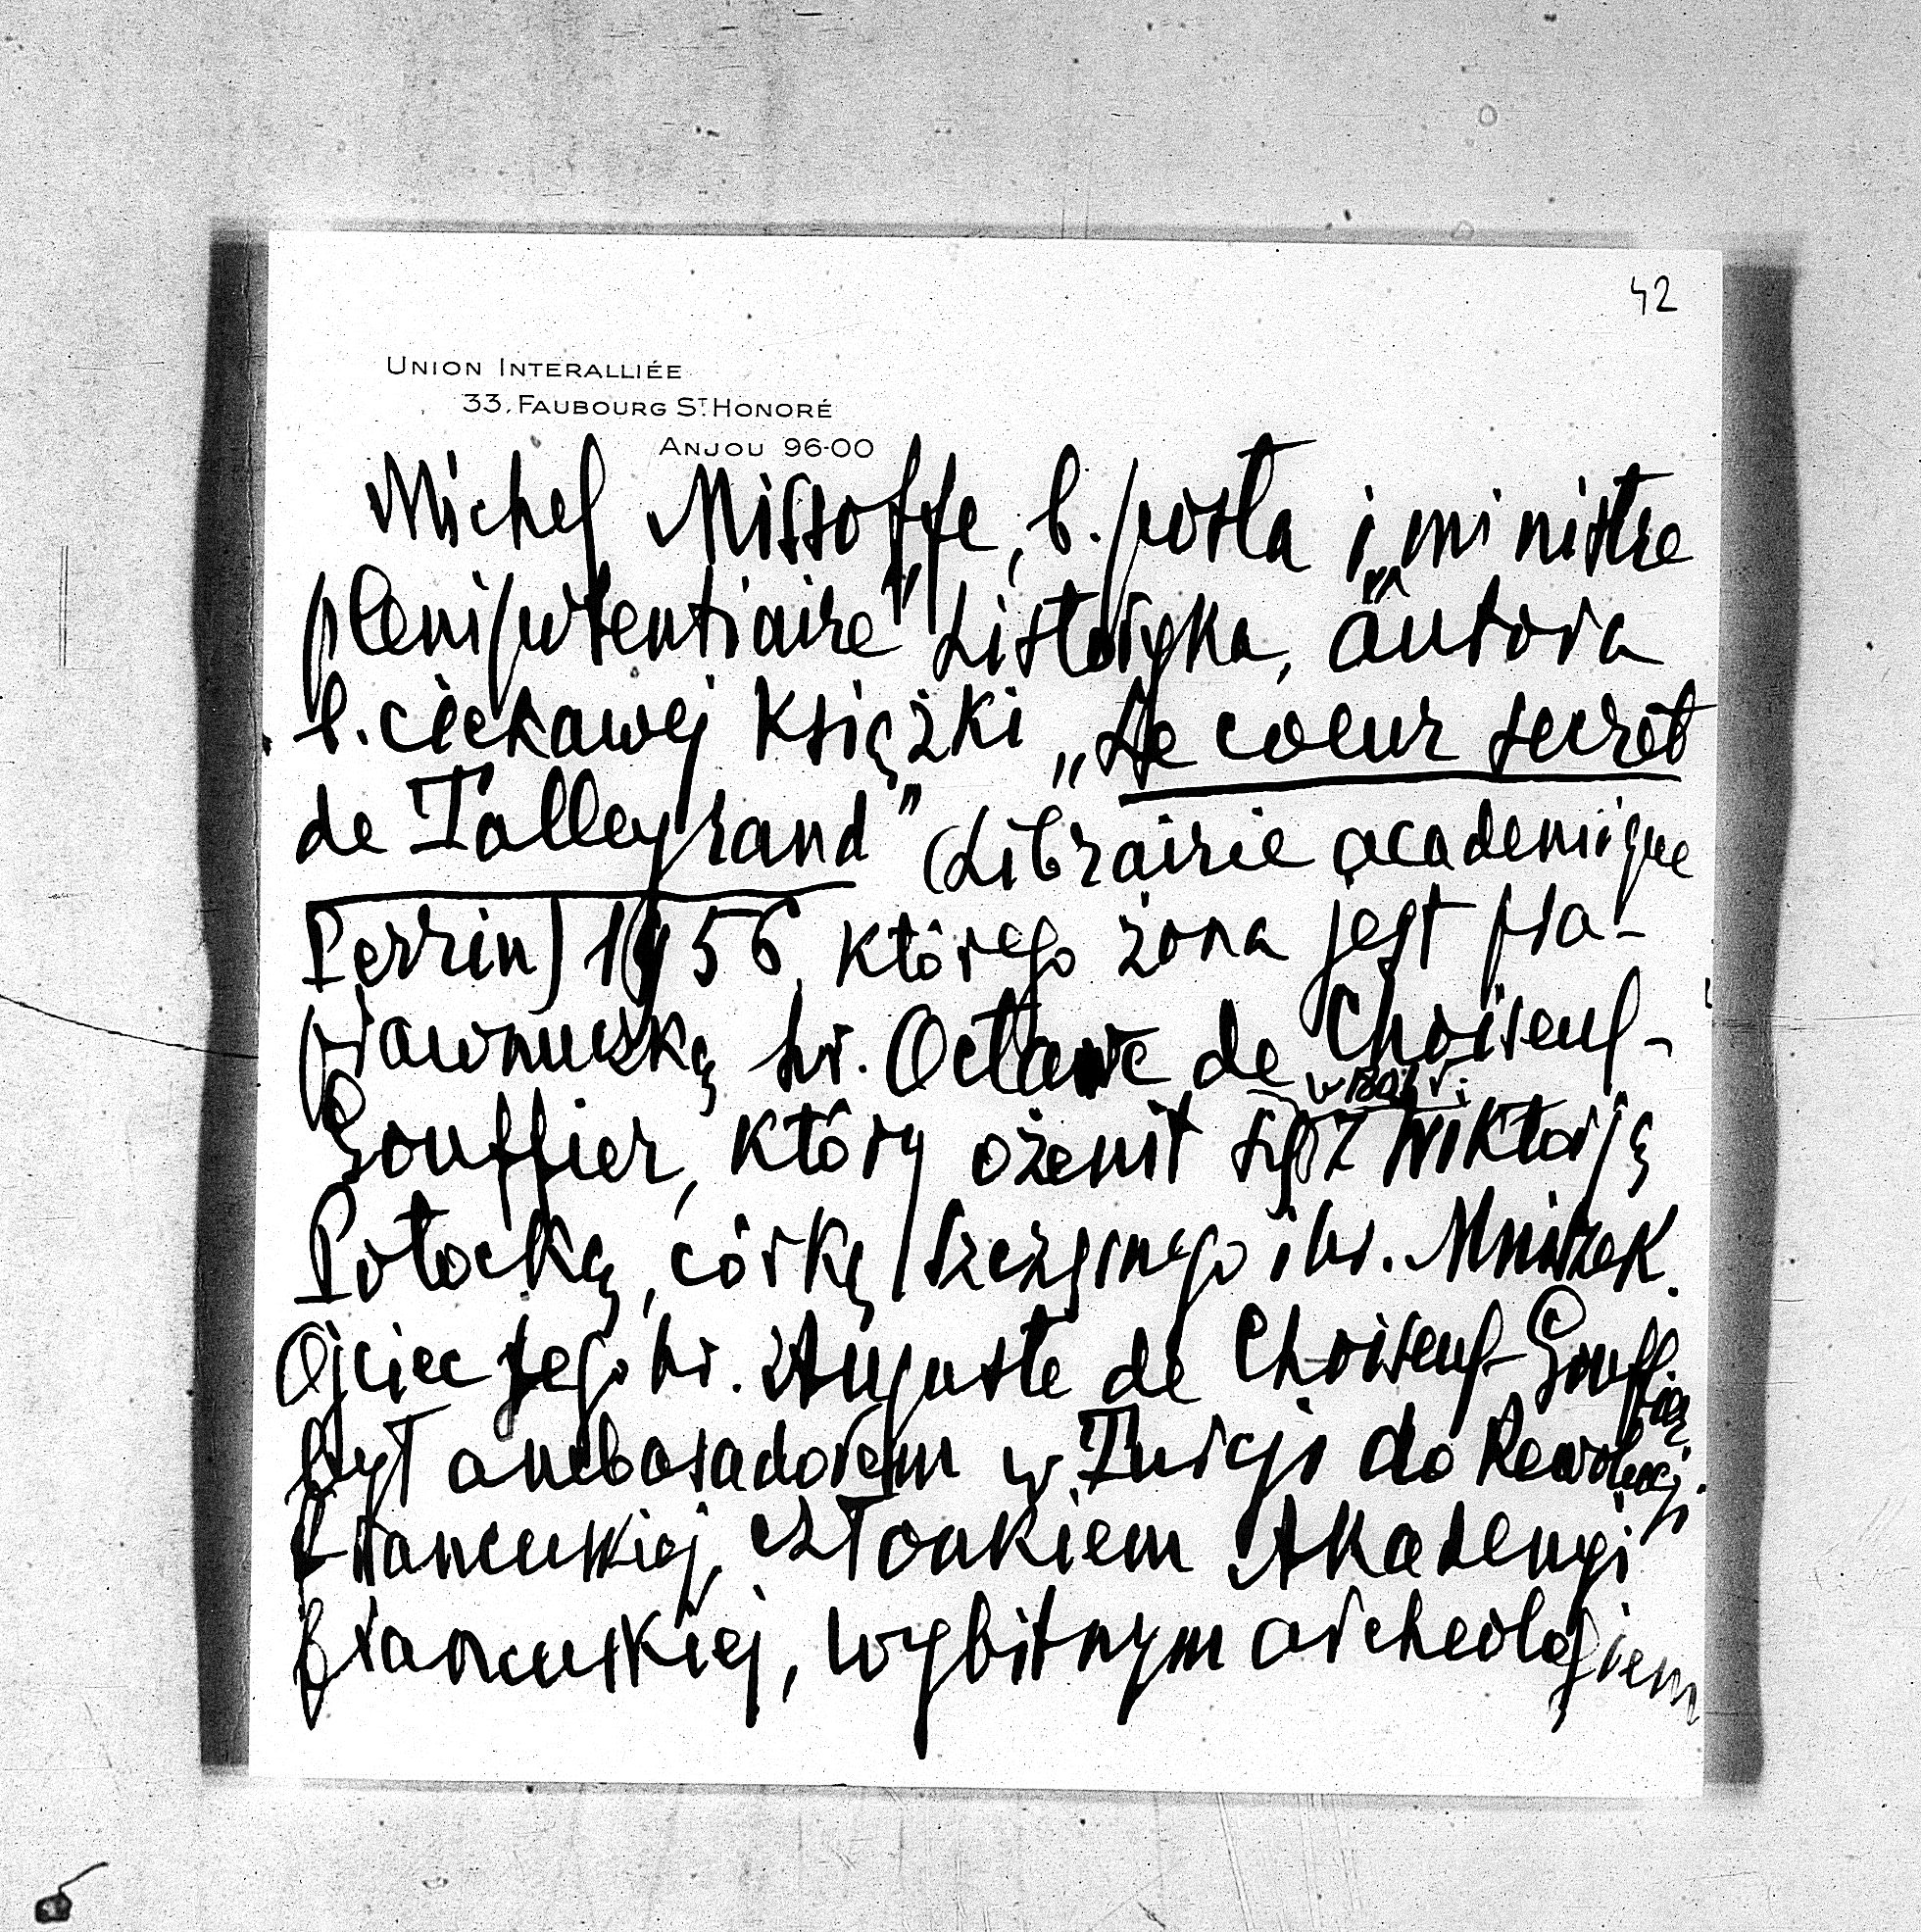 42
UNION INTERALLIÉE
33, FAUBOURG ST. HONORÉ
ANJOU 96-00
Michel Missoffe, b. posła i „ministre
plenipotentiaire” historyka, autora
b. ciekawej książki „Le coeur secret
de Talleyrand” (Librairie academique
Perrin) 1956, którego żona jest pra-
prawnuczką hr. Octave de Choiseul-
Gouffier, który ożenił się w r. z Wiktorją
Potocką, córką Szczęsnego i hr. Mniszek.
Ojciec jego hr. Auguste de Choiseul-Gouffier
był ambasadorem w Turcji do Rewolucji
Francuskiej, członkiem Akademji
francuskiej, wybitnym archeologiem